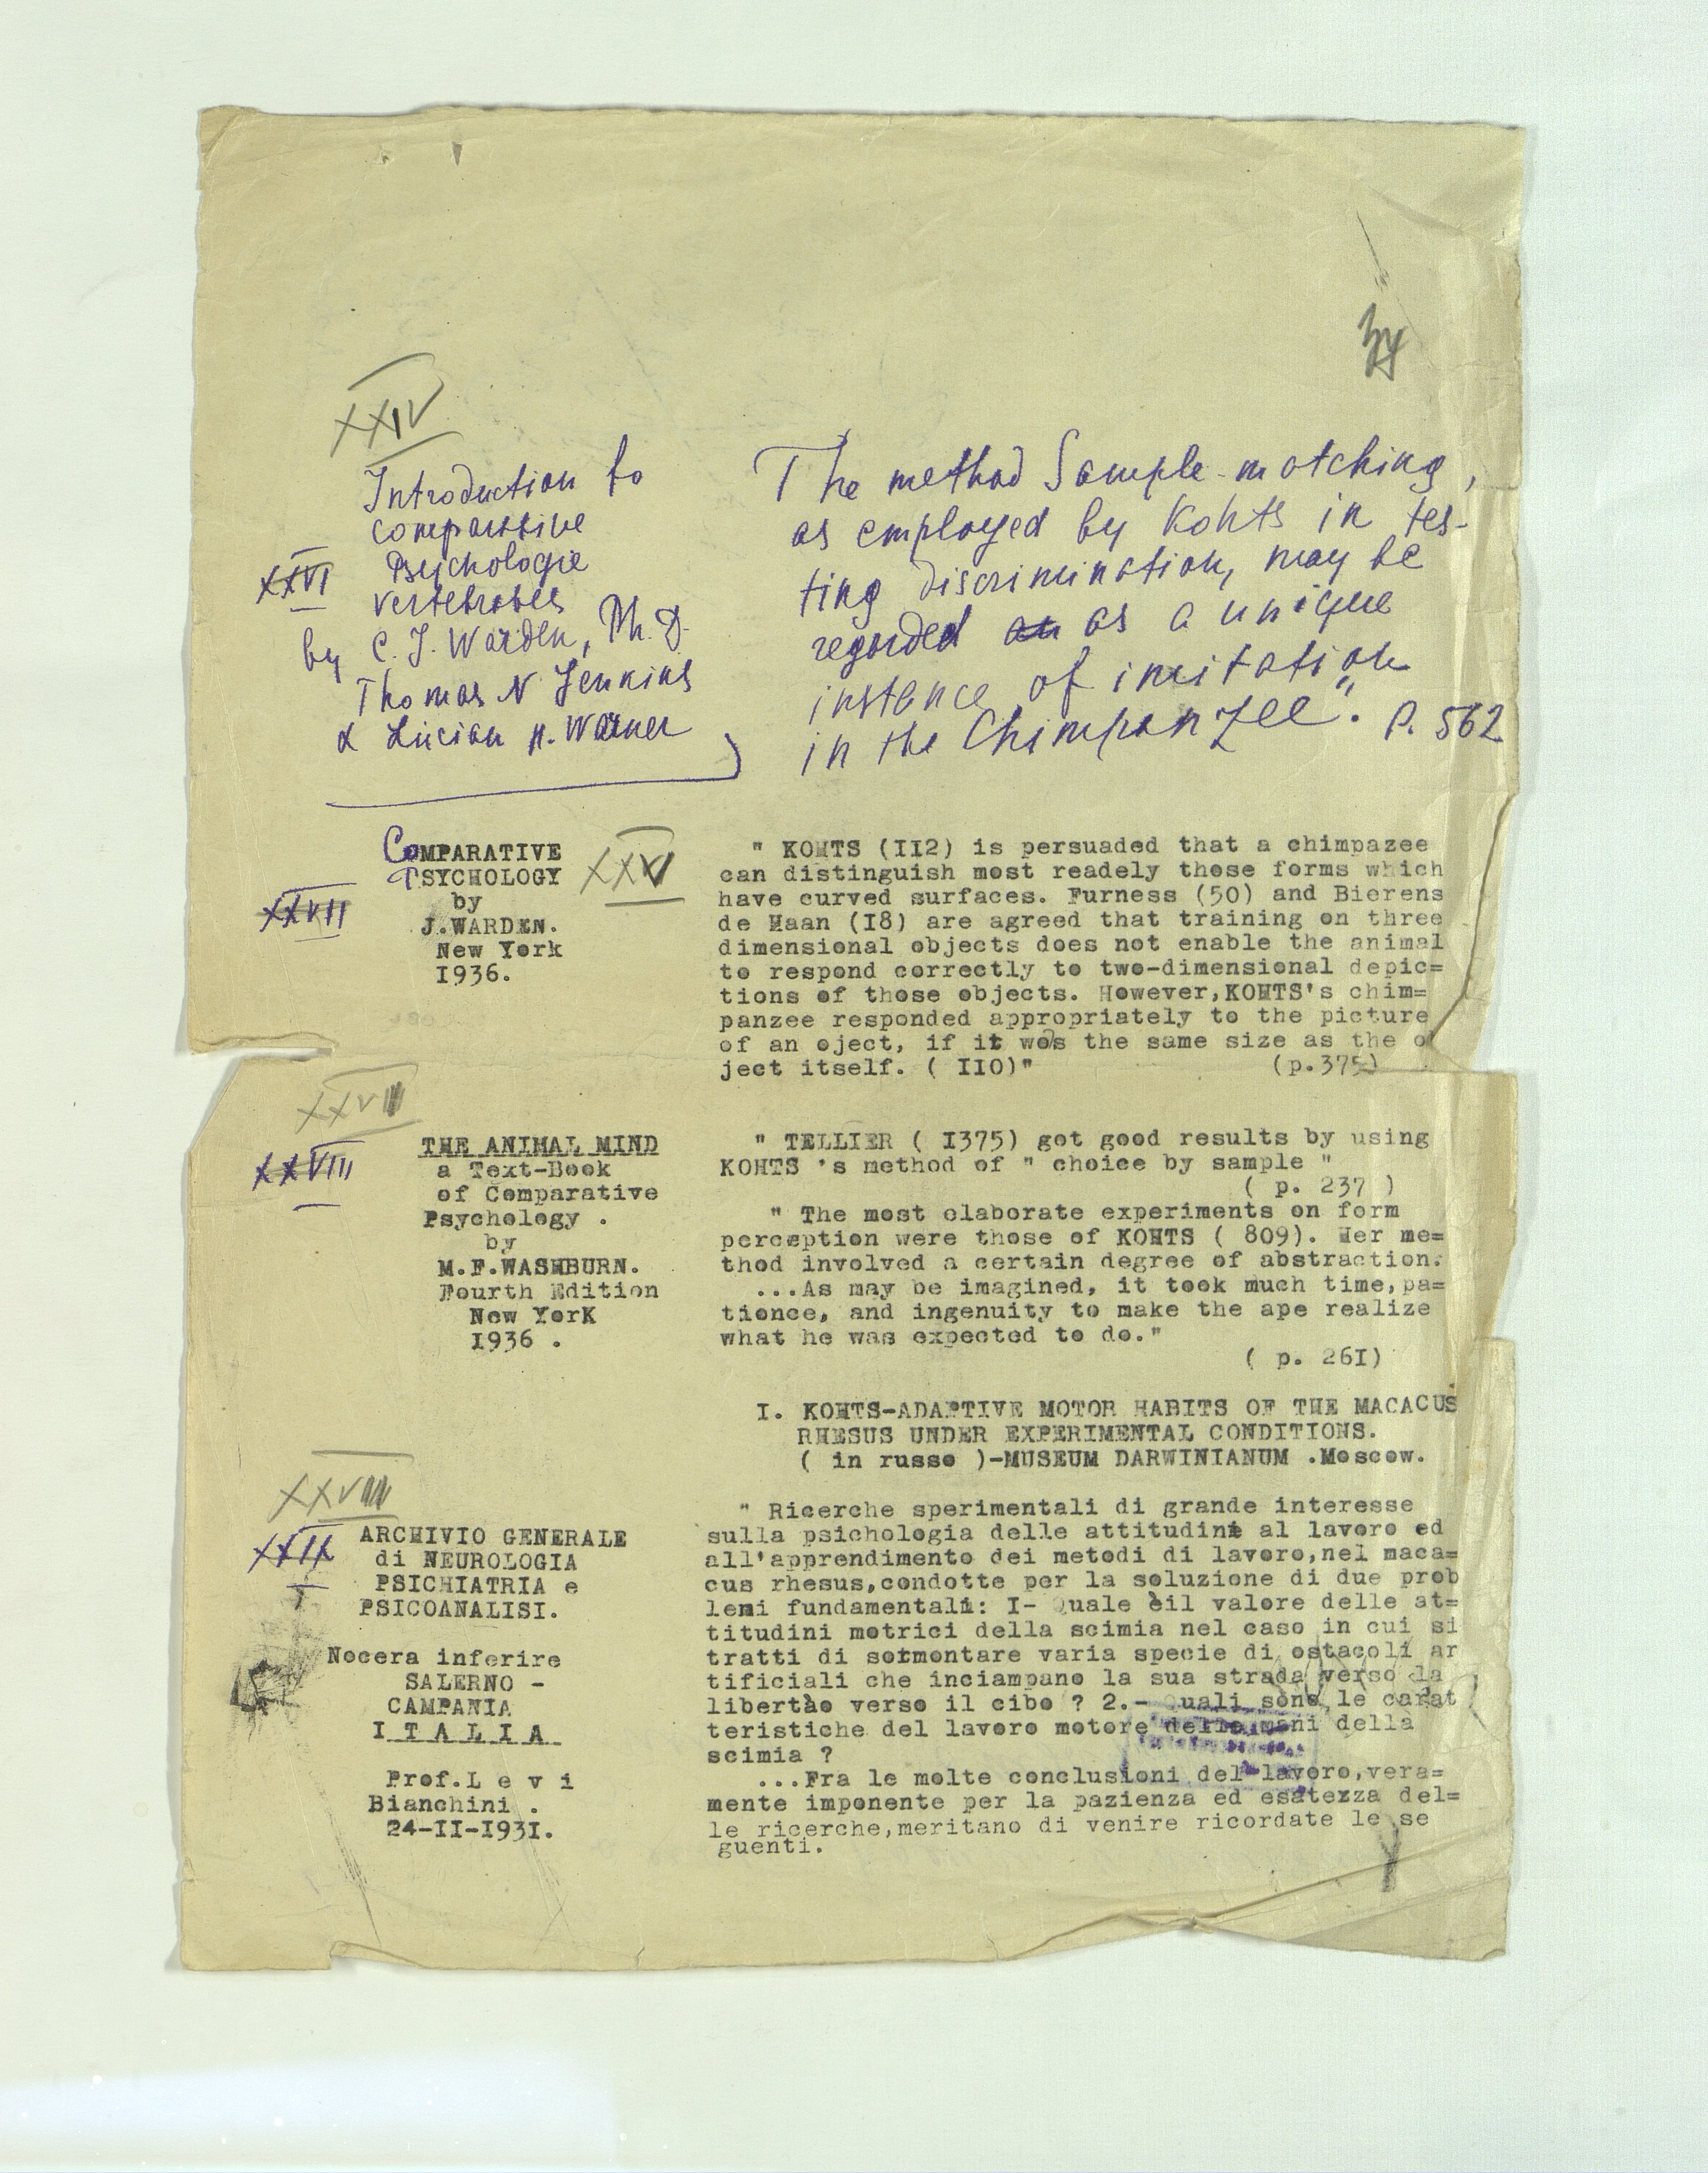 XXIV
Introduction to
comparative
Psychologie
XXVI
vertebrates
by C. J. Warden, Ph. D.
Thomas N Jenkins
& Lucian H. Warner
The method Sample-matching,
as employed by Kohts in tes-
ting discrimination, may be
regarded an as a unique
instance of imitation
in the Chimpanzee". P. 562
COMPARATIVE
PSYCHOLOGY
XXV
XXVII
by
J.WARDEN.
New York
I936.
" KOHTS (II2) is persuaded that a chimpazee
can distinguish most readely those forms which
have curved surfaces. Furness (50) and Bierens
de Haan (I8) are agreed that training on three
dimensional objects does not enable the animal
to respond correctly to two-dimensional depic=
tions of those objects. However,KOHTS's chim=
panzee responded appropriately to the picture
of an oject, if it was the same size as the o
ject itself. ( II0)" (p.375)
XXVII
XXVIII
THE ANIMAL MIND
a Text-Book
of Comparative
Psychology .
by
M.F.WASHBURN.
Fourth Edition
New YorK
I936 .
" TELLIER ( I375) got good results by using
KOHTS 's method of " choice by sample "
( p. 237 )
" The most elaborate experiments on form
perception were those of KOHTS ( 809). Her me=
thod involved a certain degree of abstraction.
...As may be imagined, it took much time,pa=
tience, and ingenuity to make the ape realize
what he was expected to do."
( p. 26I)
I. KOHTS-ADAPTIVE MOTOR HABITS OF THE MACACUS
RHESUS UNDER EXPERIMENTAL CONDITIONS.
( in russo )-MUSEUM DARWINIANUM .Moscow.
XXVIII
XXIX
ARCHIVIO GENERALE
di NEUROLOGIA
PSICHIATRIA e
PSICOANALISI.
Nocera inferire
SALERNO -
CAMPANIA
ITALIA
Prof.L e v i
Bianchini .
24-II-I93I.
" Ricerche sperimentali di grande interesse
sulla psichologia delle attitudini al lavoro ed
all'apprendimento dei metodi di lavoro,nel maca=
cus rhesus,condotte per la soluzione di due prob
lemi fundamentali: I- Quale èil valore delle at=
titudini motrici della scimia nel caso in cui si
tratti di sormontare varia specie di ostacoli ar
tificiali che inciampano la sua strada verso la
libertào verso il cibo ? 2.- Quali sono le carat
teristiche del lavoro motore delle mani della
scimia ?
...Fra le molte conclusioni del lavoro,vera=
mente imponente per la pazienza ed esatezza del=
le ricerche,meritano di venire ricordate le se
guenti.